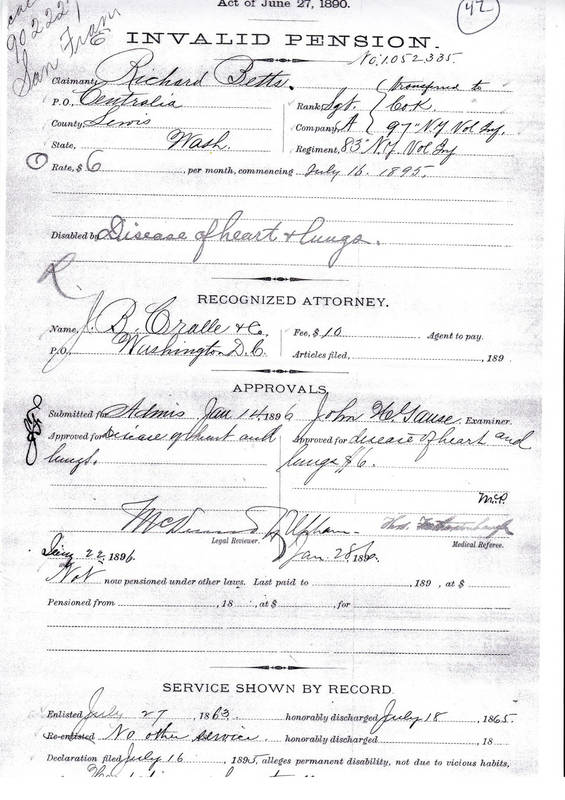 Act of June 27, 1890.
42
90222
San Fran
INVALID PENSION.
No. 1.052335.
Claimant, Richard Betts.
P.O., Centralia
County, Lewis
State, Wash.
(transferred to
Rank, Sgt. Co. K.
Company, A 97" N.Y. Vol Inf.
Regiment, 83" N.Y. Vol Inf
Rate, $ 6, per month, commencing July 16. 1895.
Disabled by Disease of heart & lungs.
RECOGNIZED ATTORNEY.
Name, J. B. Cralle & Co. Fee, $ 10 Agent to pay.
P.O., Washington D.C. Articles filed, , 189 .
APPROVALS.
Submitted for Admis Jan 14, 1896 John H. Examiner.
Approved for Disease of heart and Approved for disease of heart and
lungs. lungs $6.
Legal Reviewer. Medical Referee.
22, 1896. Jan. 28, 189
Not now pensioned under other laws. Last paid to , 189 , at $
Pensioned from , 18 , at $ , for
SERVICE SHOWN BY RECORD.
Enlisted July 27, 1863 honorably discharged July 18, 1865.
Re-enlisted No other service honorably discharged , 18 .
Declaration filed July 16, 1895, alleges permanent disability, not due to vicious habits,